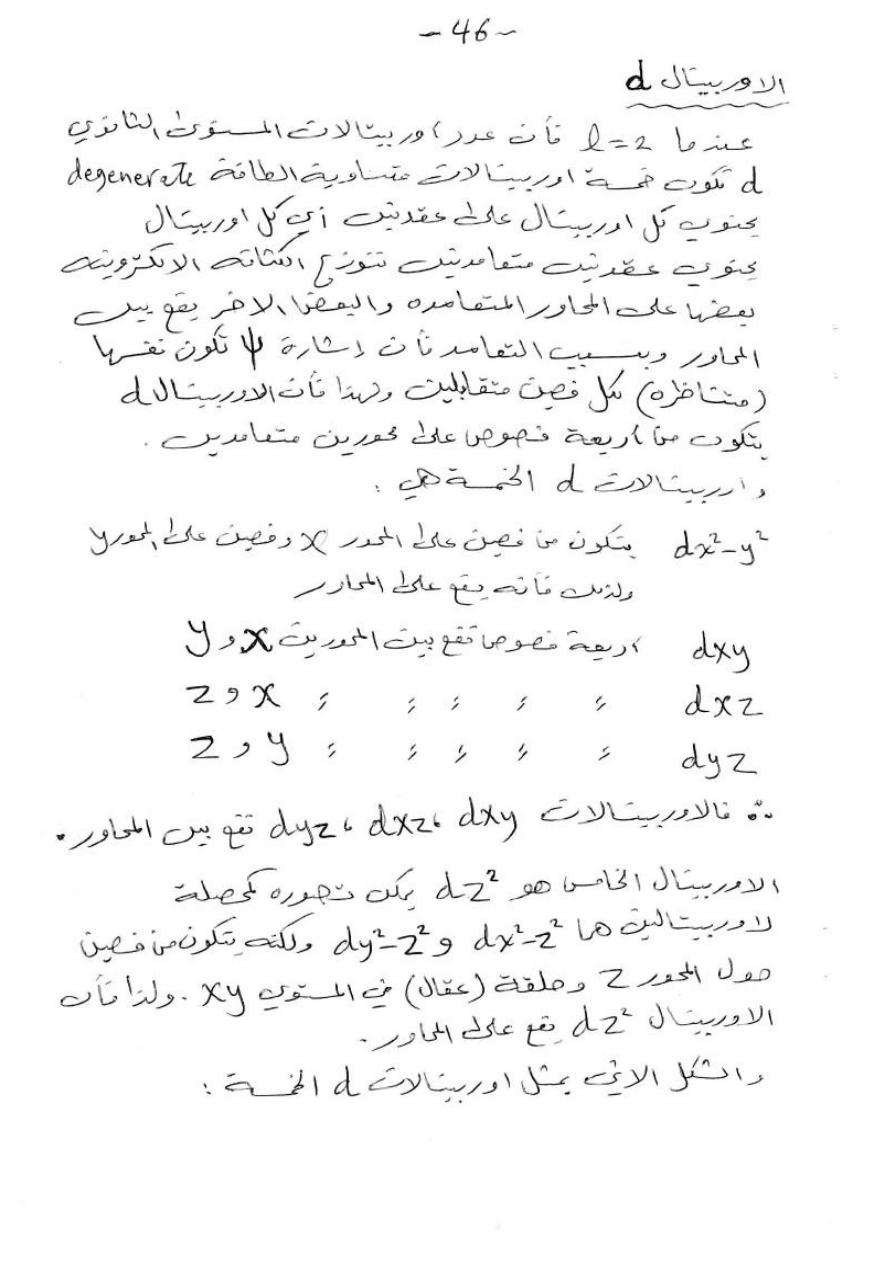 -46-
الاوربيتال d
عندما l=2 فأن عدد اوربيتالات المستوى الثانوي
d تكون خمسة اوربيتالات متساوية الطاقة degenerate
يحتوي كل اوربيتال على عقدتين أي كل اوربيتال
يحتوي عقدتين متعامدتين تتوزع الكثافه الالكترونيه
بعضها على المحاور المتعامده والبعض الاخر يقع بين
المحاور وبسبب التعامد فأن إشارة ψ تكون نفسها
(متناظره) لكل فصين متقابلين ولهذا فأن الاوربيتال d
يتكون من اربعة فصوص على محورين متعامدين .
واوربيتالات d الخمسة هي :
dx²-y² يتكون من فصين على المحور x وفصين على المحور y
ولذلك فأنه يقع على المحاور
dxy اربعة فصوص تقع بين المحورين x و y
dxz ״ ״ ״ ״ ״ x و z
dyz ״ ״ ״ ״ ״ y و z
∴ فالاوربيتالات dxy ، dxz ، dyz تقع بين المحاور .
الاوربيتال الخامس هو dz² يمكن تصوره كمحصلة
لاوربيتالين هما dx²-z² و dy²-z² ولكنه يتكون من فصين
حول المحور z وحلقة (عقال) في المستوي xy . ولذا فأن
الاوربيتال dz² يقع على المحاور .
والشكل الاتي يمثل اوربيتالات d الخمسة :